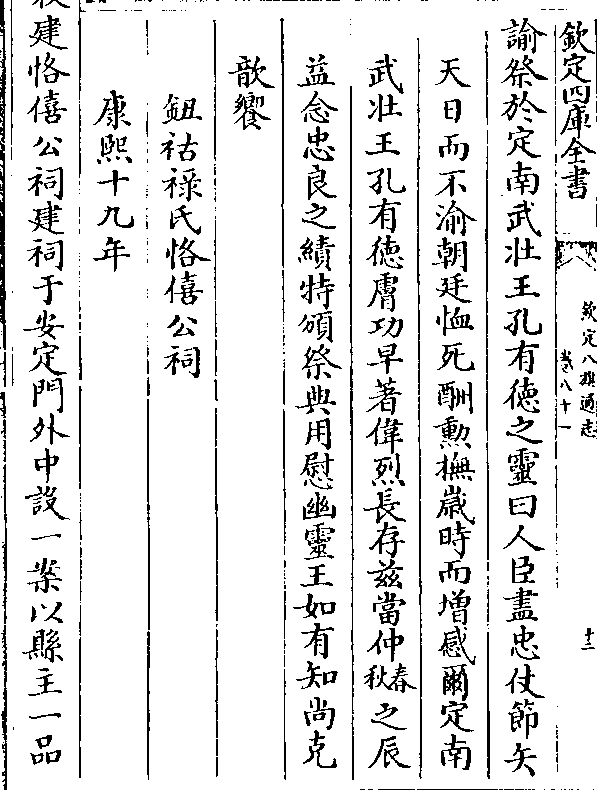 欽定四庫全書
欽定八旗通志
卷八十一
十三
諭祭於定南武壯王孔有德之靈曰人臣盡忠仗節矢
天日而不渝朝廷恤死酬勲撫歲時而增感爾定南
武壯王孔有德膚功早著偉烈長存兹當仲春秋之辰
益念忠良之績特頒祭典用慰幽靈王如有知尚克
歆饗
鈕祜祿氏恪僖公祠
康熙十九年
建恪僖公祠建祠于安定門外中設一案以縣主一品